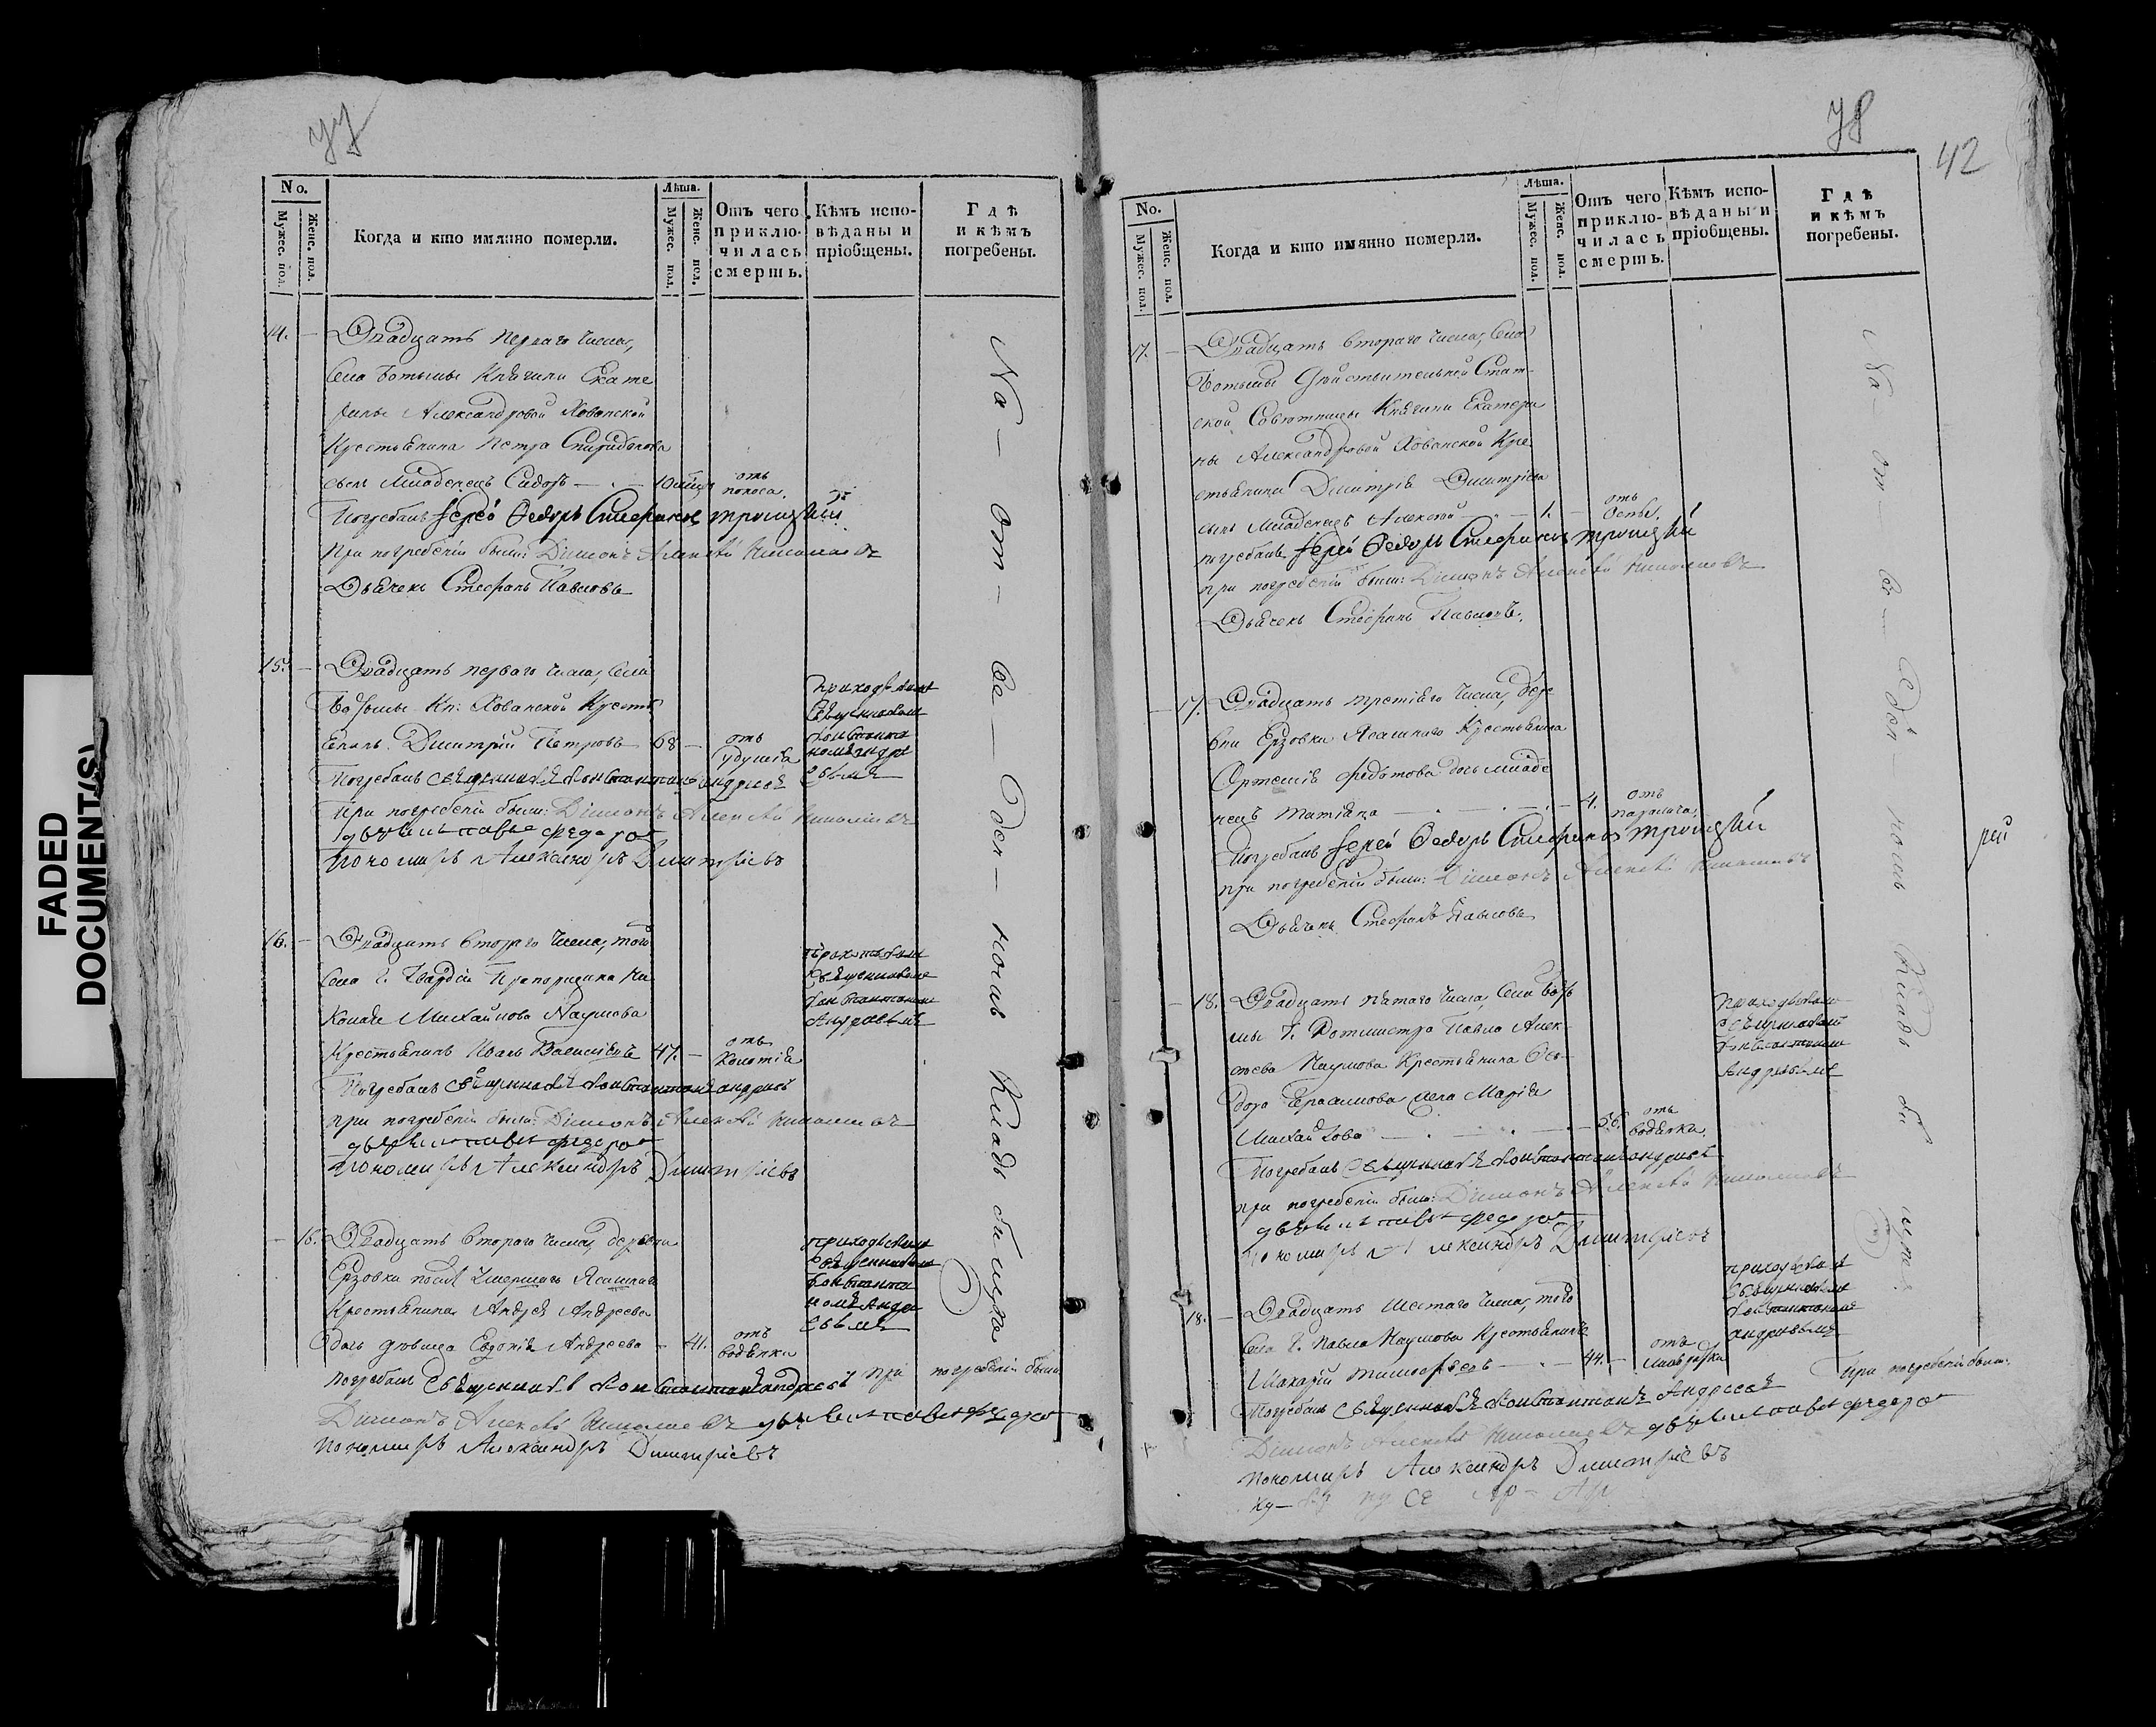 FADED
DOCUMENT(S)
77
No.
Мужес. пол.
Женс. пол.
Когда и кто имянно померли.
Лѣта.
Мужес. пол.
Женс. пол.
Отъ чего
приклю-
чилась
смерть.
Кѣмъ испо-
вѣданы и
пріобщены.
Гдѣ
и кѣмъ
погребены.
14. — Двадцать перваго числа,
Села Ботьмы Княгини Екате
рины Александровой Хованской
Крестьянина Петра Спиридонова
сынъ младенецъ Сидоръ — 10 мѣцъ
отъ
поноса.
Погребалъ Іерей Ѳедоръ Стефановъ Троицкій
При погребеніи были: Діаконъ Алексѣй Николаевъ
Дьячекъ Стефанъ Павловъ
15. — Двадцать перваго числа, Села
Ботьмы Кн: Хованской Кресть
янинъ Дмитрій Петровъ 68 —
отъ
удушья
приходскимъ
Священникомъ
Константи
номъ Андре
евымъ
Погребалъ Священникъ Константинъ Андреевъ
При погребеніи были: Діаконъ Алексѣй Николаевъ
дьячекъ павелъ федоров
Пономарь Александръ Димитріевъ
16. — Двадцать втораго числа, того
села Г. Гвардіи Прапорщика Ни
колая Михайлова Наумова
Крестьянинъ Иванъ Васильевъ 47. —
отъ
колотья
приходскимъ
Священникомъ
Константиномъ
Андреевымъ
Погребалъ Священникъ Константинъ андреевъ
при погребеніи были: Діаконъ Алексѣй Николаевъ
дьячекъ павелъ федоров
Пономарь Александръ Димитріевъ
— 16. Двадцать втораго числа, деревни
Ерзовки послѣ умершаго Ясашнаго
Крестьянина Андрея Андреева
дочь дѣвица Евдокія Андреева — 41.
отъ
водянки
приходскимъ
Священникомъ
Константи
номъ Андре
евымъ
Погребалъ Священникъ Константинъ андреевъ при погребеніи были
Діаконъ Алексѣй Николаевъ дьячекъ павелъ федоров
пономарь Александръ Димитріевъ
На — от — ве — ден — номъ Кладбищѣ
78
42
No.
Мужес. пол.
Женс. пол.
Когда и кто имянно померли.
Лѣта.
Мужес. пол.
Женс. пол.
Отъ чего
приклю-
чилась
смерть.
Кѣмъ испо-
вѣданы и
пріобщены.
Гдѣ
и кѣмъ
погребены.
17. — Двадцать втораго числа, Села
Ботьмы Дѣйствительной Стат-
ской Совѣтницы Княгини Екатери
ны Александровой Хованской Кре
стьянина Димитрія Дмитріева
сынъ младенецъ Алексѣй — 1. —
отъ
оспы.
погребалъ Іерей Ѳедоръ Стефановъ Троицкій
при погребеніи были: Діаконъ Алексѣй Николаевъ
Дьячекъ Стефанъ Павловъ.
— 17. Двадцать третіяго числа, дере
вни Ерзовки Ясашнаго Крестьянина
Артемія Федотова дочь младе
нецъ Татіяна — 4.
отъ
паралича
Погребалъ Іерей Ѳедоръ Стефановъ Троицкій
при погребеніи были: Діаконъ Алексѣй Николаевъ
Дьячекъ Стефанъ Павловъ
— 18. Двадцать пятаго числа, Села Боть
мы Г. Ротмистра Павла Алек-
сѣева Наумова Крестьянина Ѳе-
дора Герасимова жена Марія
Михайлова — 56.
отъ
водянки.
приходскимъ
Священникомъ
Константиномъ
Андреевымъ
Погребалъ Священникъ Константинъ андреевъ
при погребеніи были: Діаконъ Алексѣй Николаевъ
дьячекъ павелъ федоров
пономарь Александръ Димитріевъ
18. — Двадцать шестаго числа, того
села Г. Павла Наумова Крестьянинъ
Макарій Тимофѣевъ — 44. —
отъ
приходскимъ
Священникомъ
Константиномъ
андреевымъ
Погребалъ Священникъ Константинъ Андреевъ
При погребеніи были:
Діаконъ Алексѣй Николаевъ дьячекъ павелъ федоров
пономарь Александръ Димитріевъ
На — от — ве — ден — номъ Кладбищѣ
рей